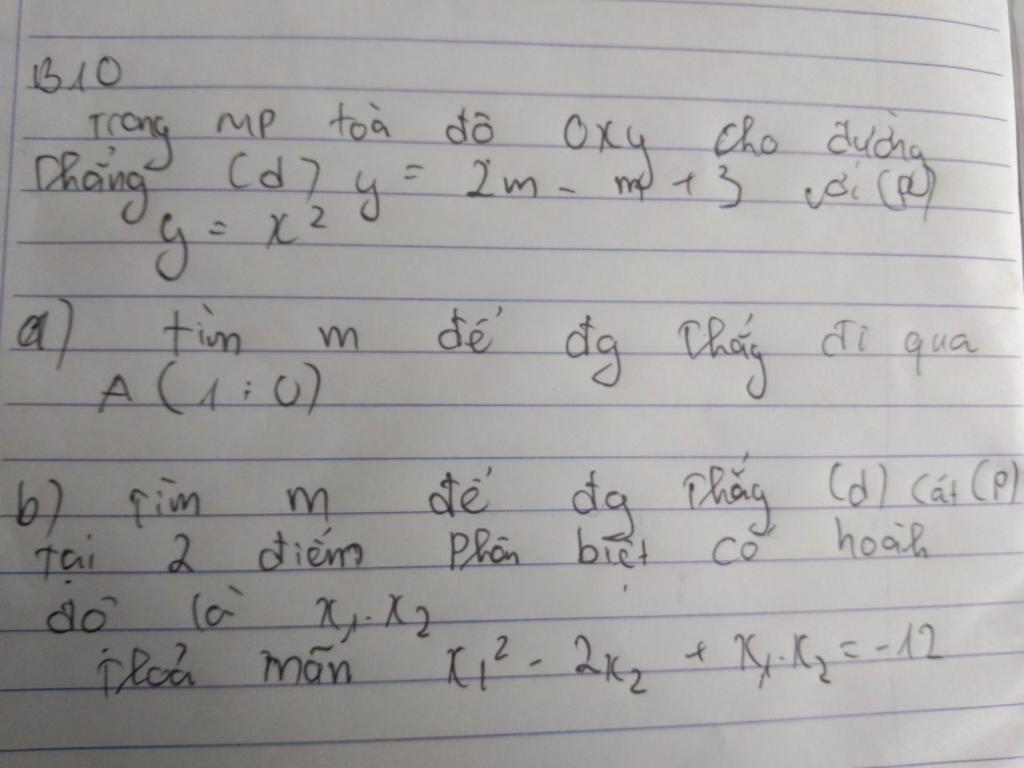 B10
Trong MP toà đô Oxy cho đường
thẳng (d) y = 2m - m + 3 với (P)
y = x²
a) tìm m để đg thẳg đi qua
A (1 ; 0)
b) Tìm m để đg thẳg (d) cắt (P)
tại 2 điểm phân biệt có hoành
độ là x₁. x₂
thoả mãn x₁² - 2x₂ + x₁.x₂ = -12